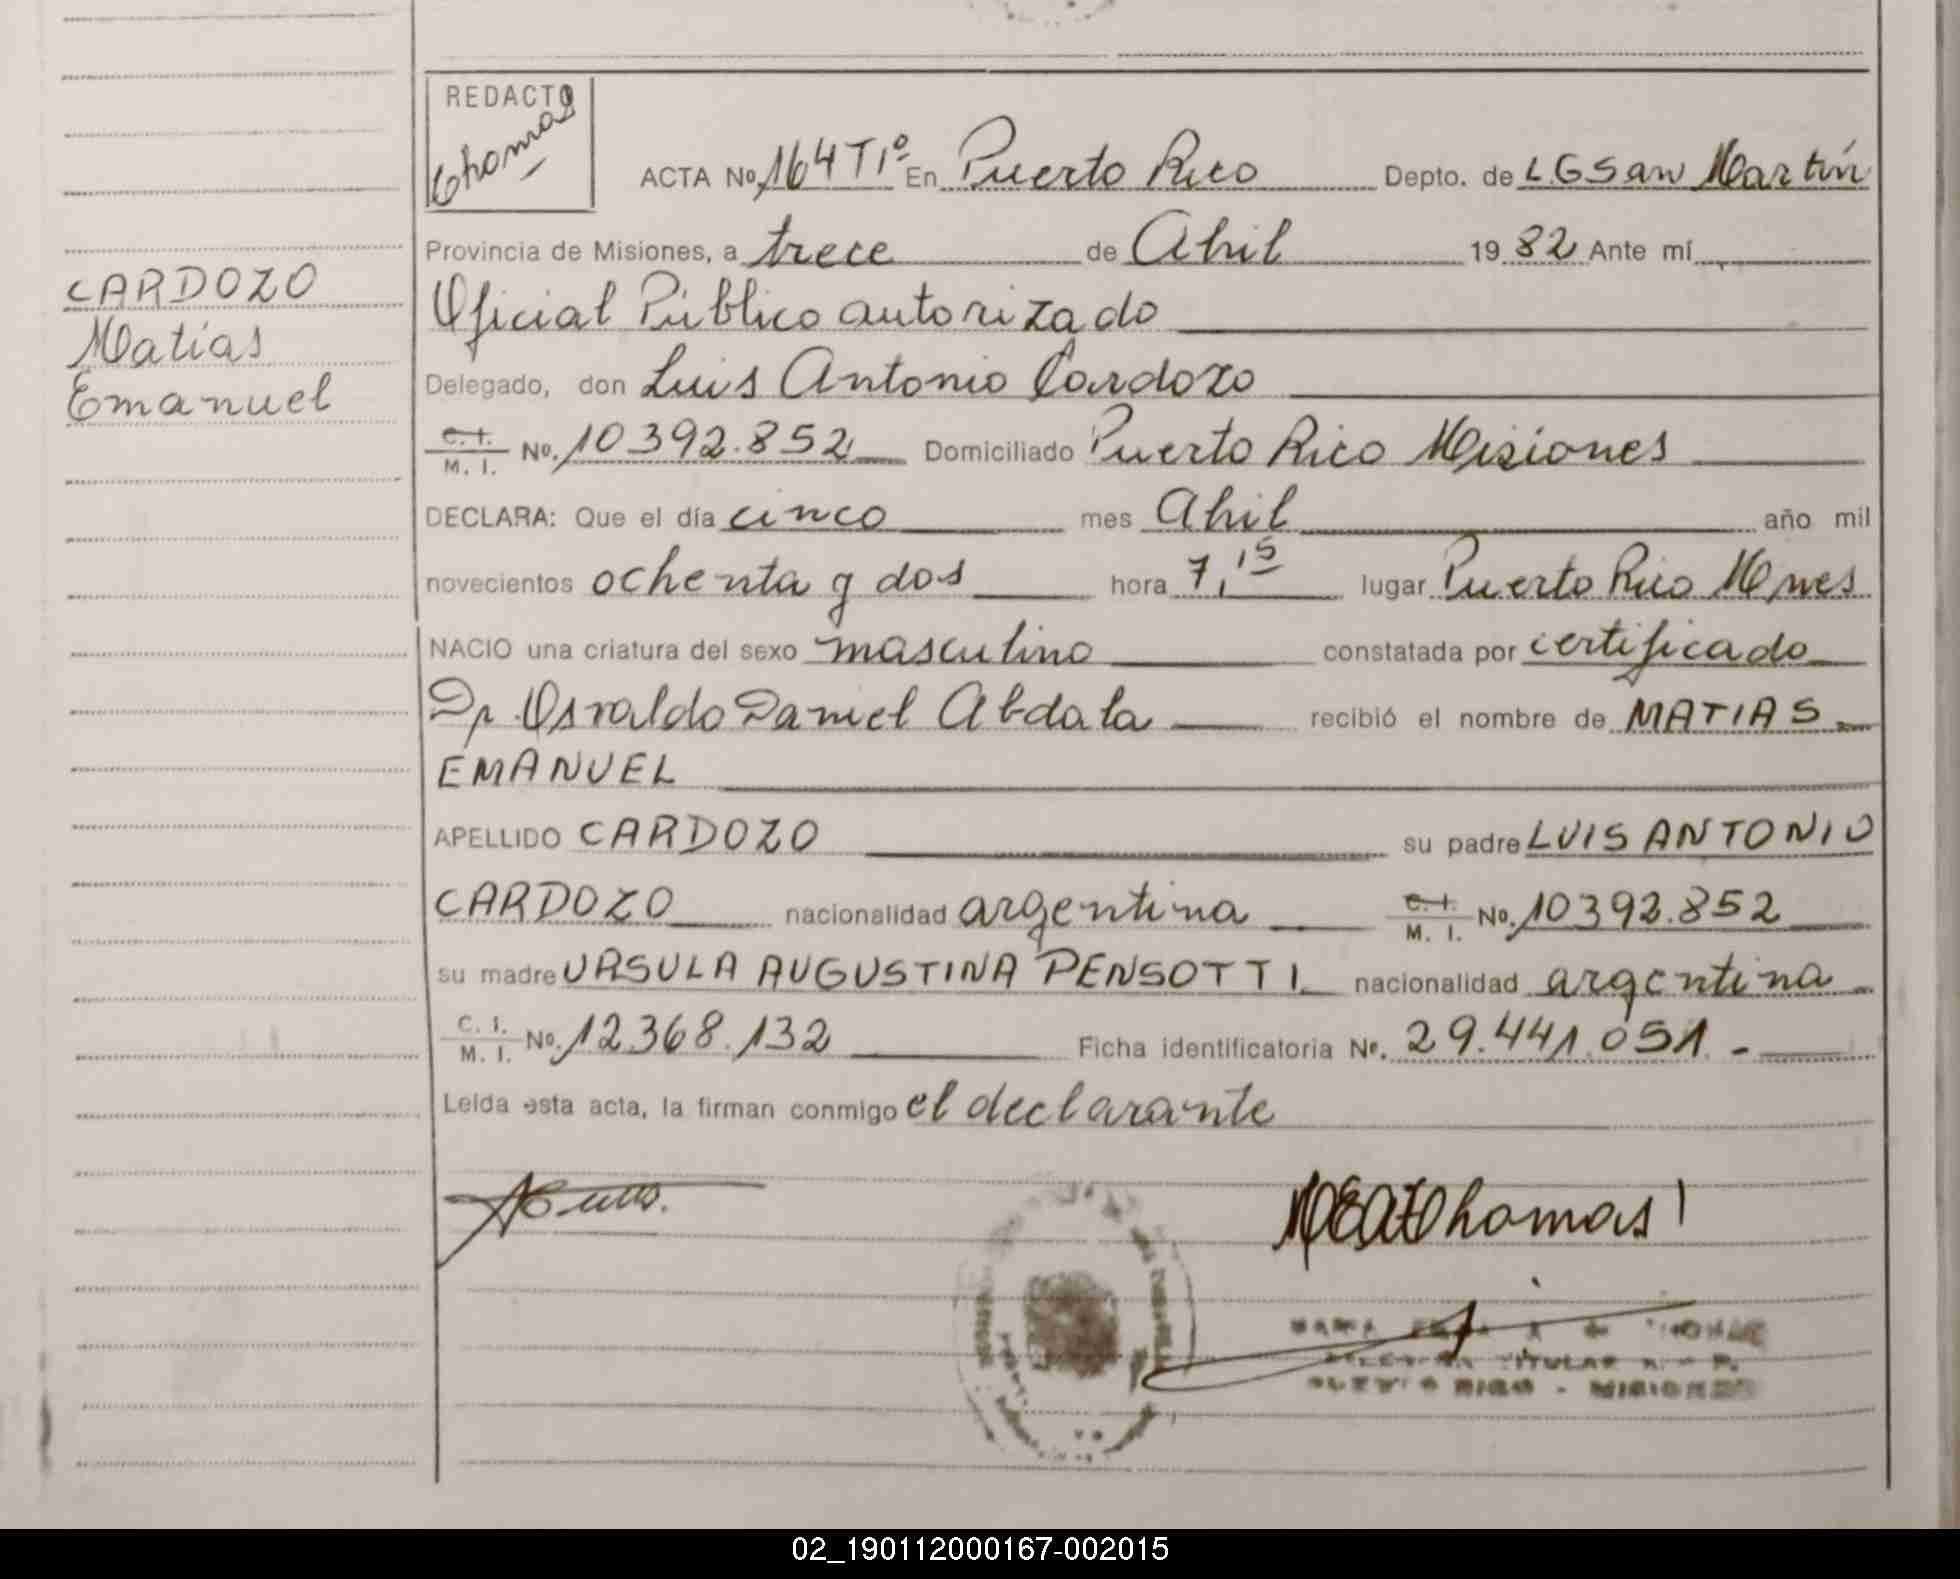 REDACTO
Thomas
ACTA No. 164 T1º En Puerto Rico Depto. de L G San Martín
Provincia de Misiones, a trece de Abril 1982 Ante mí
Oficial Público autorizado
CARDOZO
Matías
Emanuel
Delegado, don Luis Antonio Cardozo
C. I. M. I. No. 10392.852 Domiciliado Puerto Rico Misiones
DECLARA: Que el día cinco mes Abril año mil
novecientos ochenta y dos hora 7,15 lugar Puerto Rico Mnes
NACIO una criatura del sexo masculino constatada por certificado
Dr. Osvaldo Daniel Abdala recibió el nombre de MATIAS
EMANUEL
APELLIDO CARDOZO su padre LUIS ANTONIO
CARDOZO nacionalidad argentina C. I. M. I. No. 10392.852
su madre URSULA AUGUSTINA PENSOTTI nacionalidad argentina
C. I. M. I. No. 12.368.132 Ficha identificatoria No. 29.441.051.-
Leida esta acta, la firman conmigo el declarante
Thomas
TITULAR
PUERTO RICO - MISIONES
02_190112000167-002015